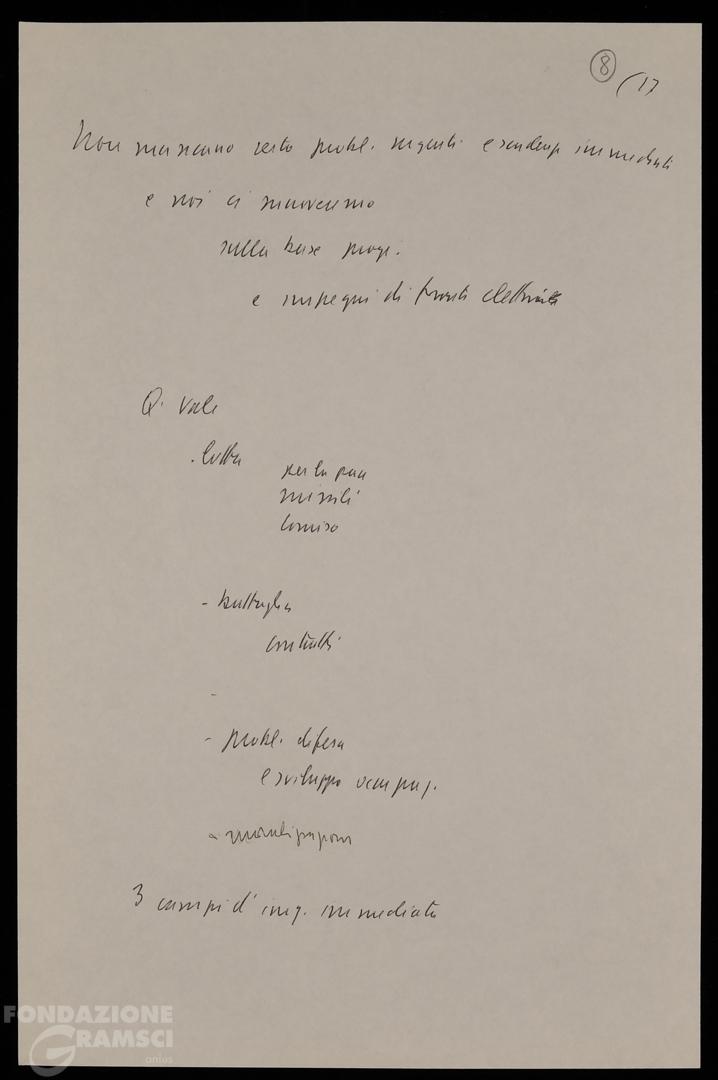 8 /17
Non mancano certo probl. urgenti e scadenze immediate
e noi ci muoveremo
sulla base progr.
e impegni di fronte elettorato
Q. vale
. lotta per la pace
missili
Comiso
- battaglia
contratti
-
- probl. difesa
e sviluppo occupaz.
-
3 campi d' imp. immediato
FONDAZIONE
GRAMSCI
onlus